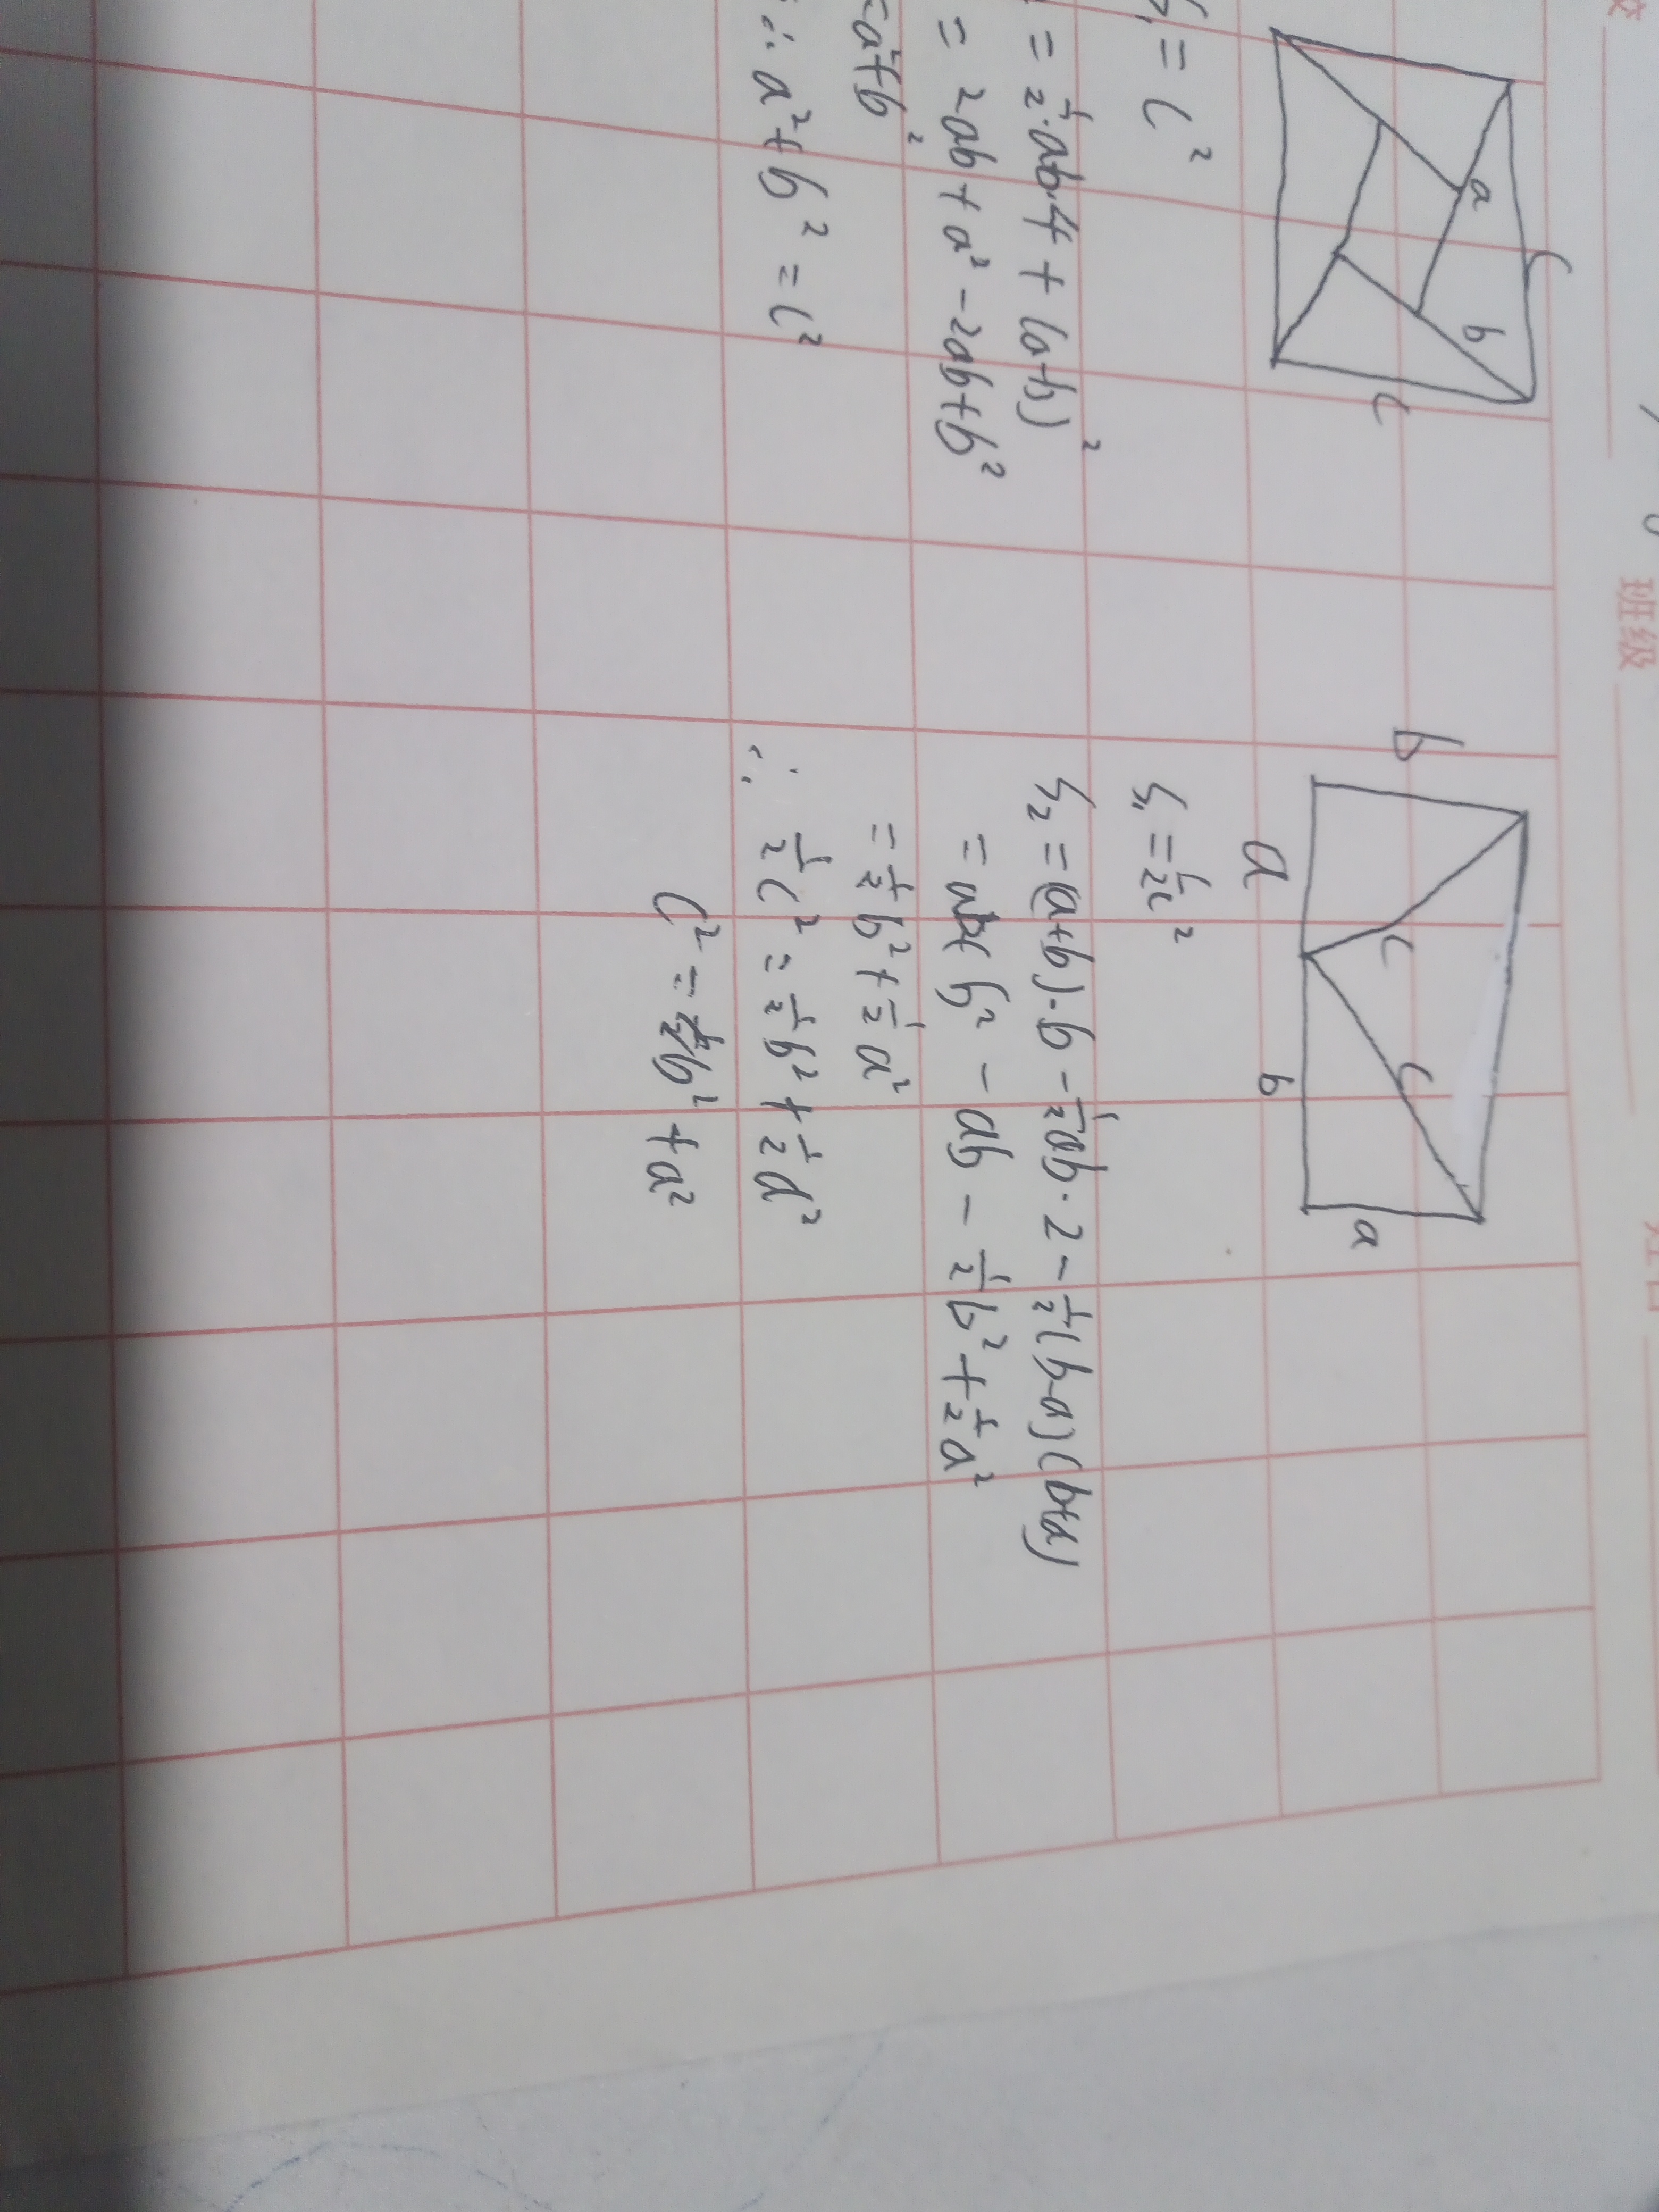 班级
c
a
b
c
S₁ = c²
= ½·ab·4 + (a-b)²
= 2ab + a² - 2ab + b²
= a² + b²
∴ a² + b² = c²
b
c
c
a
a
b
S₁ = ½c²
S₂ = (a+b)·b - ½ab·2 - ½(b-a)(b+a)
= ab + b² - ab - ½b² + ½a²
= ½b² + ½a²
∴ ½c² = ½b² + ½a²
c² = b² + a²